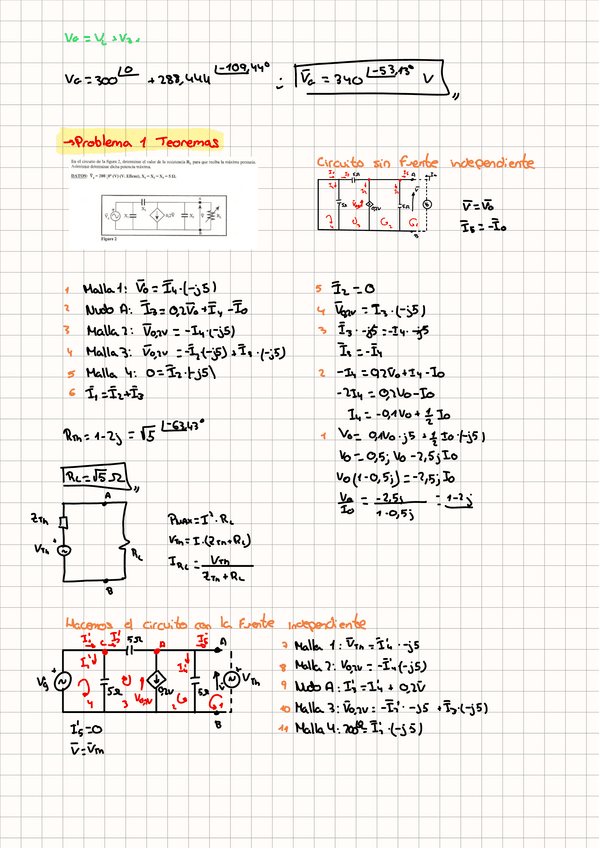 Va = VL + V2.
Va = 300∠0 + 288,444∠-109,44° ÷ V̄a = 340∠-53,13° V
→Problema 1 Teoremas
En el circuito de la figura 2, determinar el valor de la resistencia RL para que reciba la máxima potencia.
Asimismo determinar dicha potencia máxima.
Figura 2
Circuito sin fuente independiente
V̄ = V̄o
Ī5 = -Īo
1 Malla 1: V̄o = Ī4·(-j5)
2 Nudo A: Ī3 = 0,2V̄o + Ī4 - Īo
3 Malla 2: V̄0,2V = -Ī4·(-j5)
4 Malla 3: V̄0,2V = -Ī2(-j5) + Ī3·(-j5)
5 Malla 4: 0 = Ī2·(-j5)
6 Ī1 = Ī2 + Ī3
5 Ī2 = 0
4 V̄0,2V = I3·(-j5)
3 Ī3·-j5 = -I4·-j5
Ī3 = -Ī4
2 -I4 = 0,2Vo + I4 - Io
-2I4 = 0,2Vo - Io
I4 = -0,1Vo + 1/2 Io
1 Vo = 0,1Vo·j5 + 1/2 Io·(-j5)
Vo = 0,5j Vo - 2,5j Io
Vo(1-0,5j) = -2,5j Io
Vo/Io = -2,5j/1-0,5j = 1-2j
RTh = 1-2j = √5∠-63,43°
RL = √5 Ω
A
ZTh
VTh
RL
B
PMAX = I²·RL
VTh = I·(ZTh + RL)
IRL = VTh/ZTh + RL
Hacemos el circuito con la fuente independiente
I'5 = 0
V̄ = V̄Th
7 Malla 1: V̄Th = Ī'4·-j5
8 Malla 2: V0,2V = -Ī'4(-j5)
9 Nudo A: Ī'3 = Ī'4 + 0,2V̄
10 Malla 3: V̄0,2V = -Ī2'·-j5 + Ī3·(-j5)